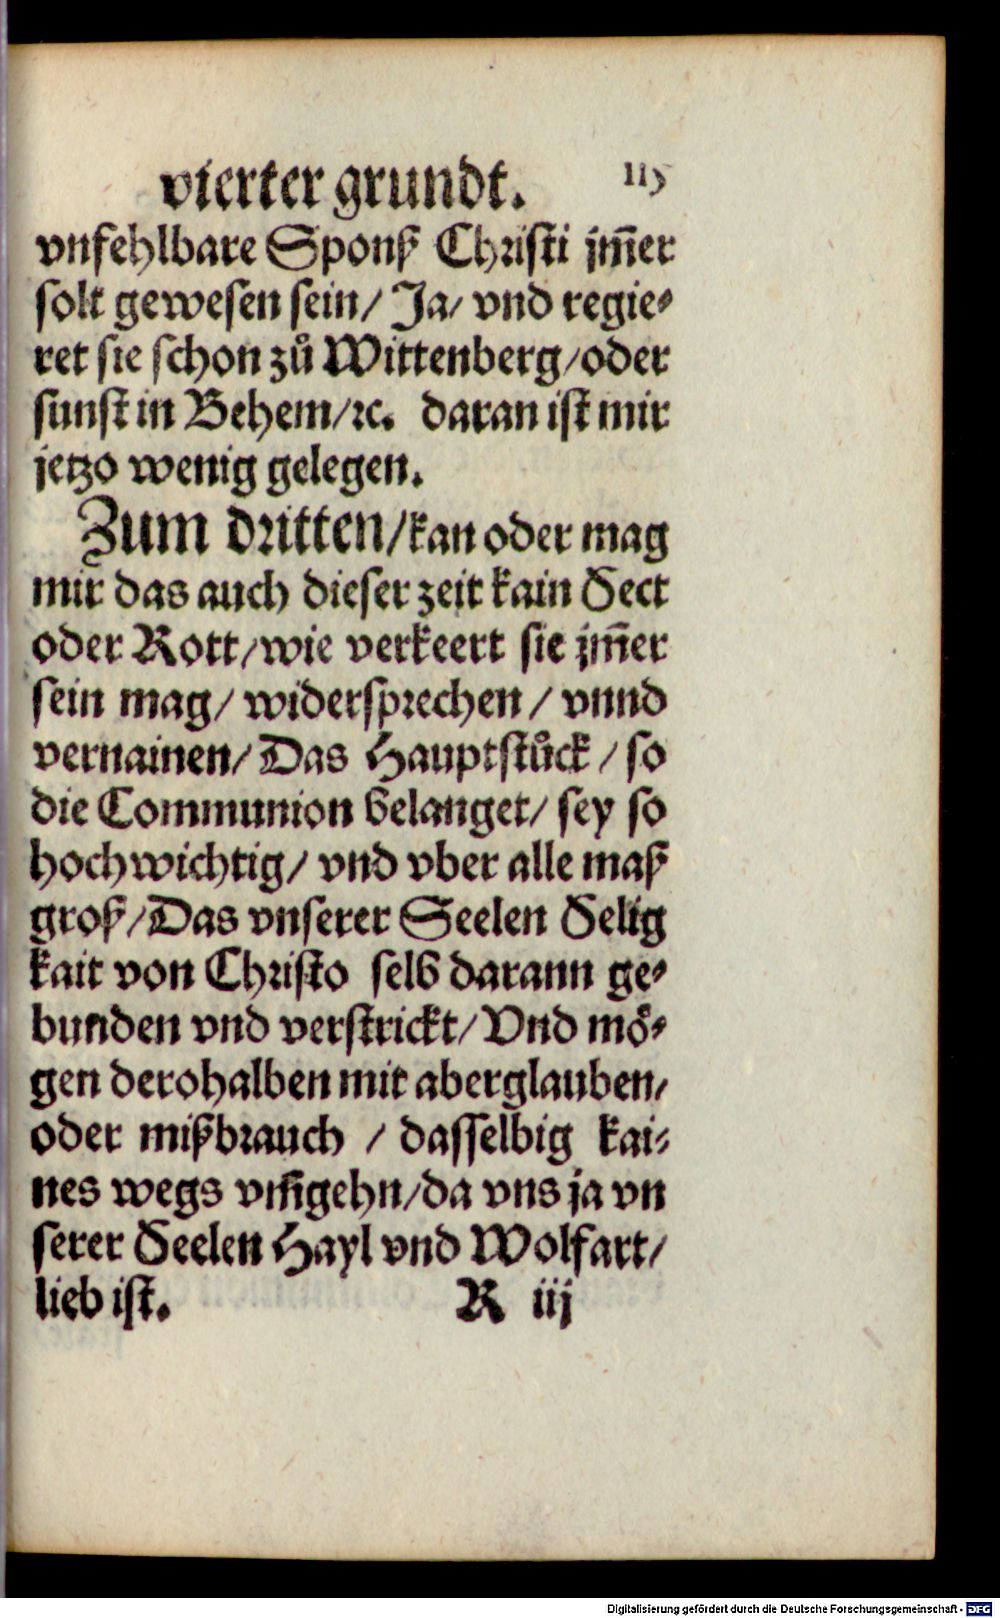 vierter grundt. 115
vnfehlbare Sponß Christi jm̃er
solt gewesen sein/ Ja/ vnd regie⸗
ret sie schon zů Wittenberg/oder
sunst in Behem/ꝛc. daran ist mir
jetzo wenig gelegen.
Zum dritten/kan oder mag
mir das auch dieser zeit kain Sect
oder Rott/wie verkeert sie jm̃er
sein mag/ widersprechen / vnnd
vernainen/ Das Hauptstůck / so
die Communion belanget/ sey so
hochwichtig/ vnd vber alle maß
groß/Das vnserer Seelen Selig
kait von Christo selb darann ge⸗
bunden vnd verstrickt/ Vnd mö⸗
gen derohalben mit aberglauben/
oder mißbrauch / dasselbig kai⸗
nes wegs vm̃gehn/da vns ja vn
serer Seelen Hayl vnd Wolfart/
lieb ist. R iij
Digitalisierung gefördert durch die Deutsche Forschungsgemeinschaft - DFG